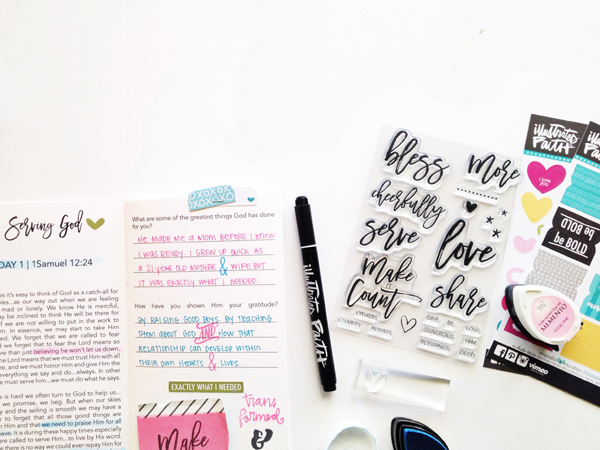 Serving God
DAY 1 | 1Samuel 12:24
it's easy to think of God as a catch-all for
as our way out when we are feeling
mad or lonely. We know He is merciful,
may be inclined to think He will be there for
if we are not willing to put in the work to
In essence, we may start to take Him
We forget that we are called to fear
we forget that to fear the Lord means to
more than just believing he won't let us down.
the Lord means that we must trust Him with all
and we must honor Him and give Him the
everything we say and do...always. In other
must serve him...we must do what he says.
is hard we often turn to God to help us...
we promise, we beg. But when our skies
and the sailing is smooth we may have a
to forget that all those good things are
Him and that we need to praise Him for all
It is during these happy times especially
are called to serve Him...to live by His word.
there is no way we could ever repay Him for
OXOXOX
XOXOXO
What are some of the greatest things God has done
for you?
HE MADE ME A MOM BEFORE I KNEW
I WAS READY. I GREW UP QUICK AS
A 21 YEAR OLD MOTHER & WIFE BUT
IT WAS EXACTLY WHAT I NEEDED.
How have you shown Him your gratitude?
BY RAISING GOOD BOYS. BY TEACHING
THEM ABOUT GOD AND HOW THAT
RELATIONSHIP CAN DEVELOP WITHIN
THEIR OWN HEARTS & LIVES.
EXACTLY WHAT I NEEDED
Make
trans
formed
&
illustrated
FAITH
bless
More
cheerfully
serve
love
Make
Count
share
ALWAYS
GIVE
BE
LOVE
GENEROUS
illustrated
FAITH
I love you
BE BOLD
be BOLD
MEMENTO
vimeo